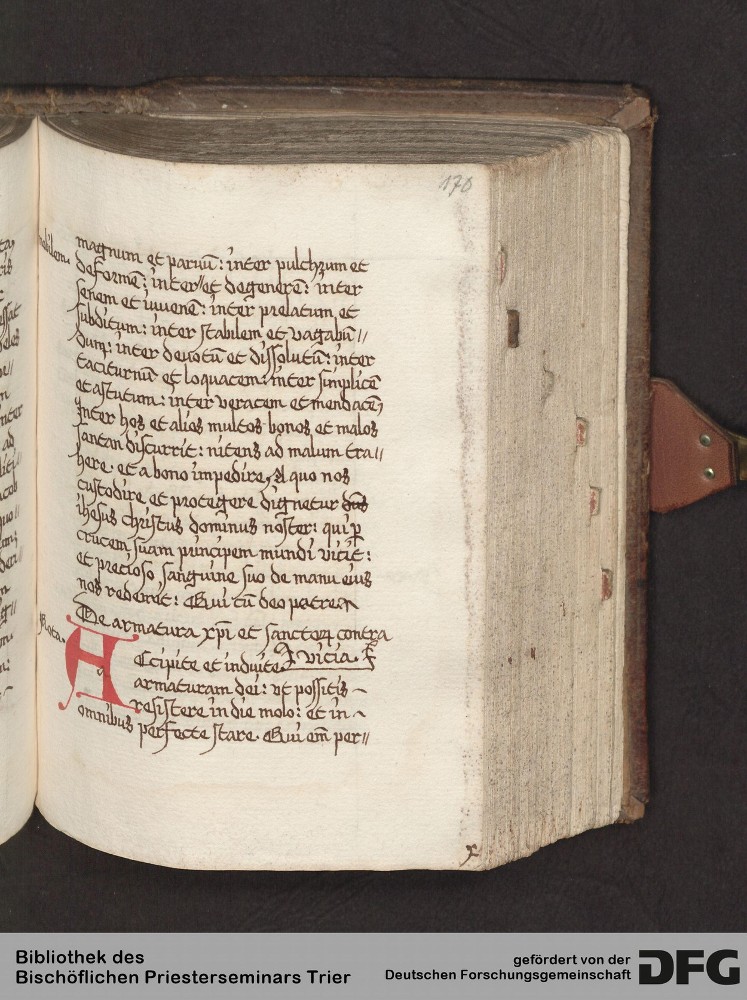 170
magnum et paruū: inter pulchrum et
nobilem. deformē: inter // et degenerē: inter
senem et iuuenē: inter prelatum et
subditum: inter stabilem et vagabū//
dum: inter deuotū et dissolutū: inter
taciturnū et loquacem: inter simplicē
et astutum: inter veracem et mendacē,
Inter hos et alios multos bonos et malos
santan discurrit: nitens ad malum tra//
here. et a bono impedire, A quo nos
custodire et protegere dignetur dn̄s
ihesus christus dominus noster: qui ꝑ
crucem suam principem mundi vicit:
et precioso sanguine suo de manu eius
nos redemet: Qui cū deo patre
De armatura xp̄i et sanctoꝝ contra
Nota. Accipite et induite vicia.
armaturam dei: vt possitis
resistere in die molo: et in
omnibus perfecte stare. Qui em̄ per//
Bibliothek des
Bischöflichen Priesterseminars Trier
gefördert von der
Deutschen Forschungsgemeinschaft DFG